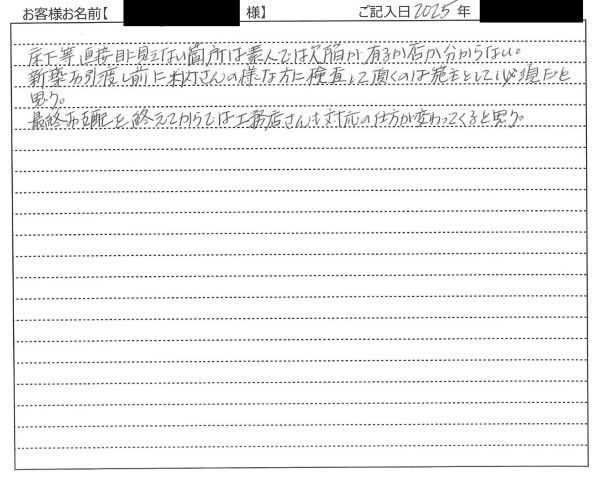 お客様お名前【 様】 ご記入日 2025 年
床下等直接目に見えない箇所は素人では欠陥が有るか否か分からない。
新築お引渡し前に さんの様な方に検査して頂くのは施主として必須だと
思う。
最終お支配を終えてからでは工務店さんも対応の仕方が変わってくると思う。